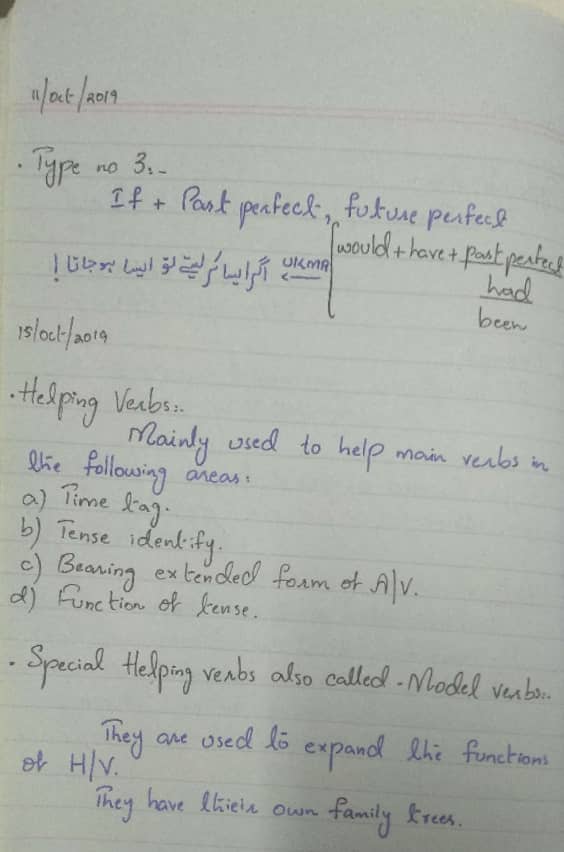 11/oct/2019
. Type no 3:-
If + Past perfect, future perfect
would + have + past perfect
اگر ایسا کر لیتے تو ایسا ہو جاتا !
had
been
15/oct/2019
. Helping Verbs:.
Mainly used to help main verbs in
the following areas:
a) Time tag.
b) Tense identify.
c) Bearing extended form of A/V.
d) Function of tense.
. Special Helping verbs also called - Model verbs:.
They are used to expand the functions
of H/V.
They have their own family trees.